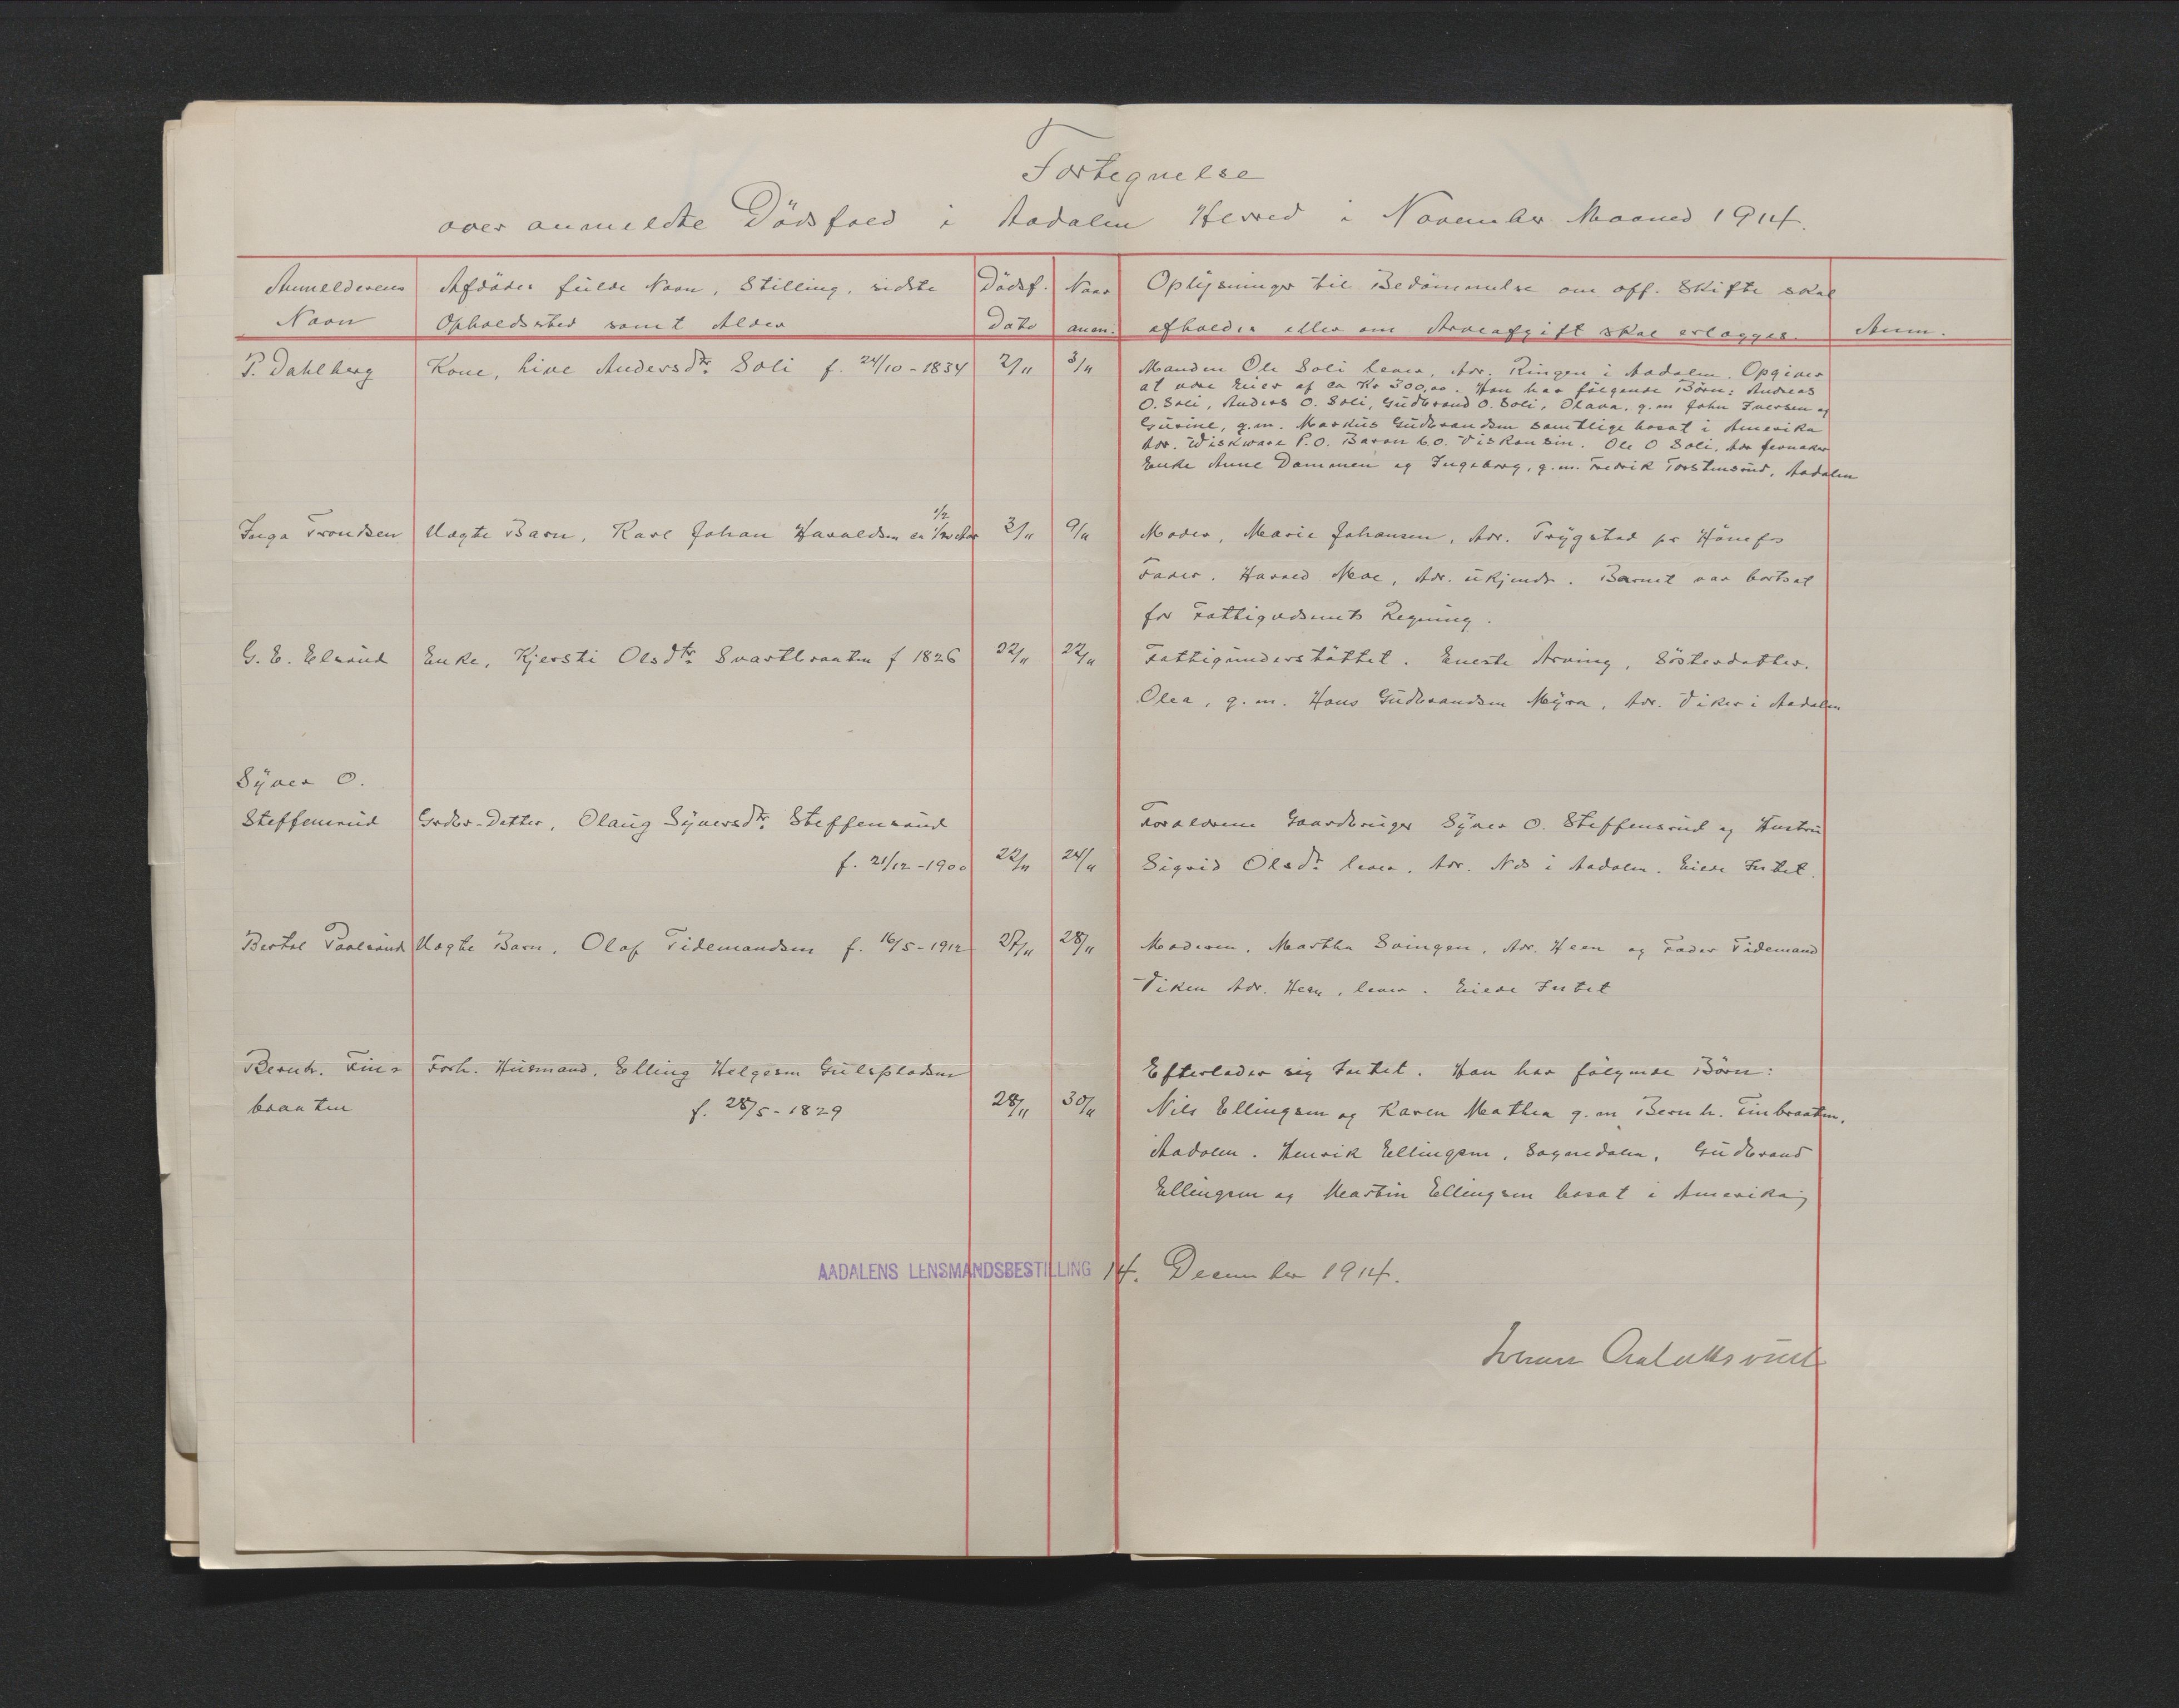 Fortegnelse
over anmeldte Dödsfald i Aadalen Herred i November Maaned 1914.
Anmelderens Navn
Afdödes fulde Navn, Stilling, sidste
Opholdssted samt Alder
Dödsf. Dato
Naar anm.
Oplysninger til Bedömmelse om off. Skifte skal
afholdes eller om Arveafgift skal erlægges.
Anm.
P. Dahlberg
Kone, Live Andersdtr. Soli f. 24/10-1834
2/11
3/11
Manden Ole Soli lever, Adr. Ringen i Aadalen. Opgiver
at være Eier af ca Kr 300,00. Hun har fölgende Börn: Andreas
O. Soli, Anders O. Soli, Gudbrand O. Soli, Olava, g.m. John Iversen og
Gurine, g.m. Markus Gudbrandsen samtlige bosat i Amerika
Adr. Wiskware P.O. Baron C.o. Viskonsin. Ole O Soli, Adr Jevnaker
Enke Anne Dammen og Ingeborg, g.m. Fredrik Torstensrud, Aadalen
Inga Trondsen
Uægte Barn, Karl Johan Haraldsen ca 1 1/2 Aar
3/11
9/11
Moder, Marie Johansen, Adr. Trygstad pr Hönefos
Fader. Harald Moe, Adr. ukjendt. Barnet var bortsat
for Fattigvæsenets Regning.
G. E. Elsrud
Enke, Kjersti Olsdtr. Svartbraaten f 1826
22/11
22/11
Fattigunderstöttet. Eneste Arving, Sösterdatter.
Olea, g.m. Hans Gudbrandsen Myra, Adr. Viker i Aadalen
Syver O.
Steffensrud
Grdbr-Datter, Olaug Syversdtr. Steffensrud
f. 21/12-1900
22/11
24/11
Forældrene Gaardbruger Syver O. Steffensrud og Hustru
Sigrid Olsdtr lever, Adr. Næs i Aadalen. Eiede Intet.
Bertel Paalsrud
Uægte Barn, Olaf Tidemandsen f. 16/5-1912
27/11
28/11
Moderen, Martha Svingen, Adr. Heen og Fader Tidemand
Viken Adr. Heen, lever. Eiede Intet
Bernh. Fin-
braaten
Forh. Husmand, Elling Helgesen Gulspladsen
f. 28/5-1829
28/11
30/11
Efterlader sig Intet. Han har fölgende Börn:
Nils Ellingsen og Karen Mathea g.m. Bernh. Finbraaten,
Aadalen. Henrik Ellingsen, Sognedalen, Gudbrand
Ellingsen og Martin Ellingsen bosat i Amerika;
AADALENS LENSMANDSBESTILLING 14. December 1914.